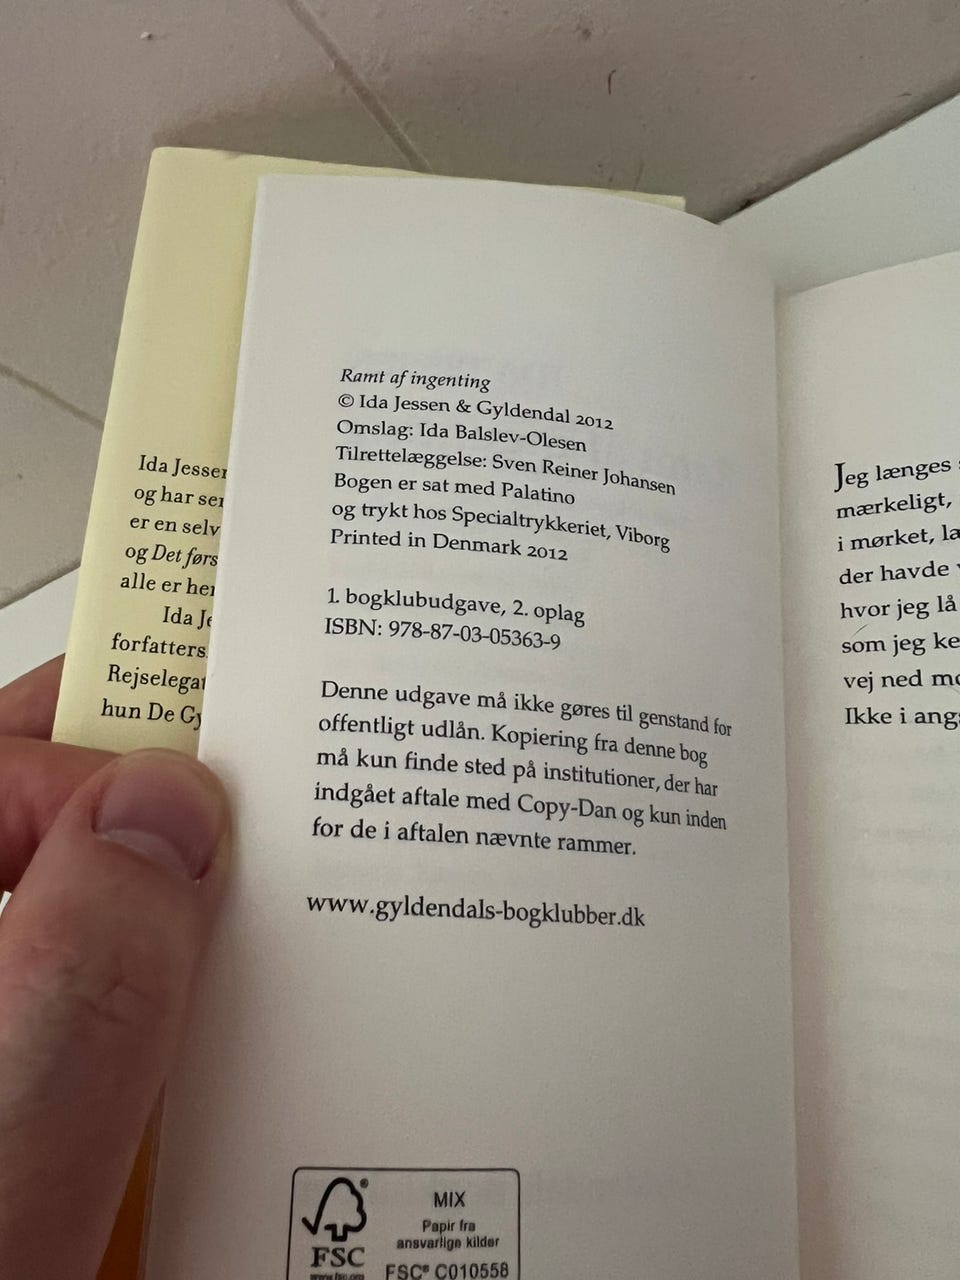 Ida Jessen
og har
er en selv
og Det førs
alle er her
Ida
forfatters
Rejselegat
hun De
Ramt af ingenting
© Ida Jessen & Gyldendal 2012
Omslag: Ida Balslev-Olesen
Tilrettelæggelse: Sven Reiner Johansen
Bogen er sat med Palatino
og trykt hos Specialtrykkeriet, Viborg
Printed in Denmark 2012
1. bogklubudgave, 2. oplag
ISBN: 978-87-03-05363-9
Denne udgave må ikke gøres til genstand for
offentligt udlån. Kopiering fra denne bog
må kun finde sted på institutioner, der har
indgået aftale med Copy-Dan og kun inden
for de i aftalen nævnte rammer.
www.gyldendals-bogklubber.dk
FSC
www.fsc.org
MIX
Papir fra
ansvarlige kilder
FSC® C010558
Jeg længes
mærkeligt,
i mørket,
der havde
hvor jeg lå
som jeg
vej ned
Ikke i